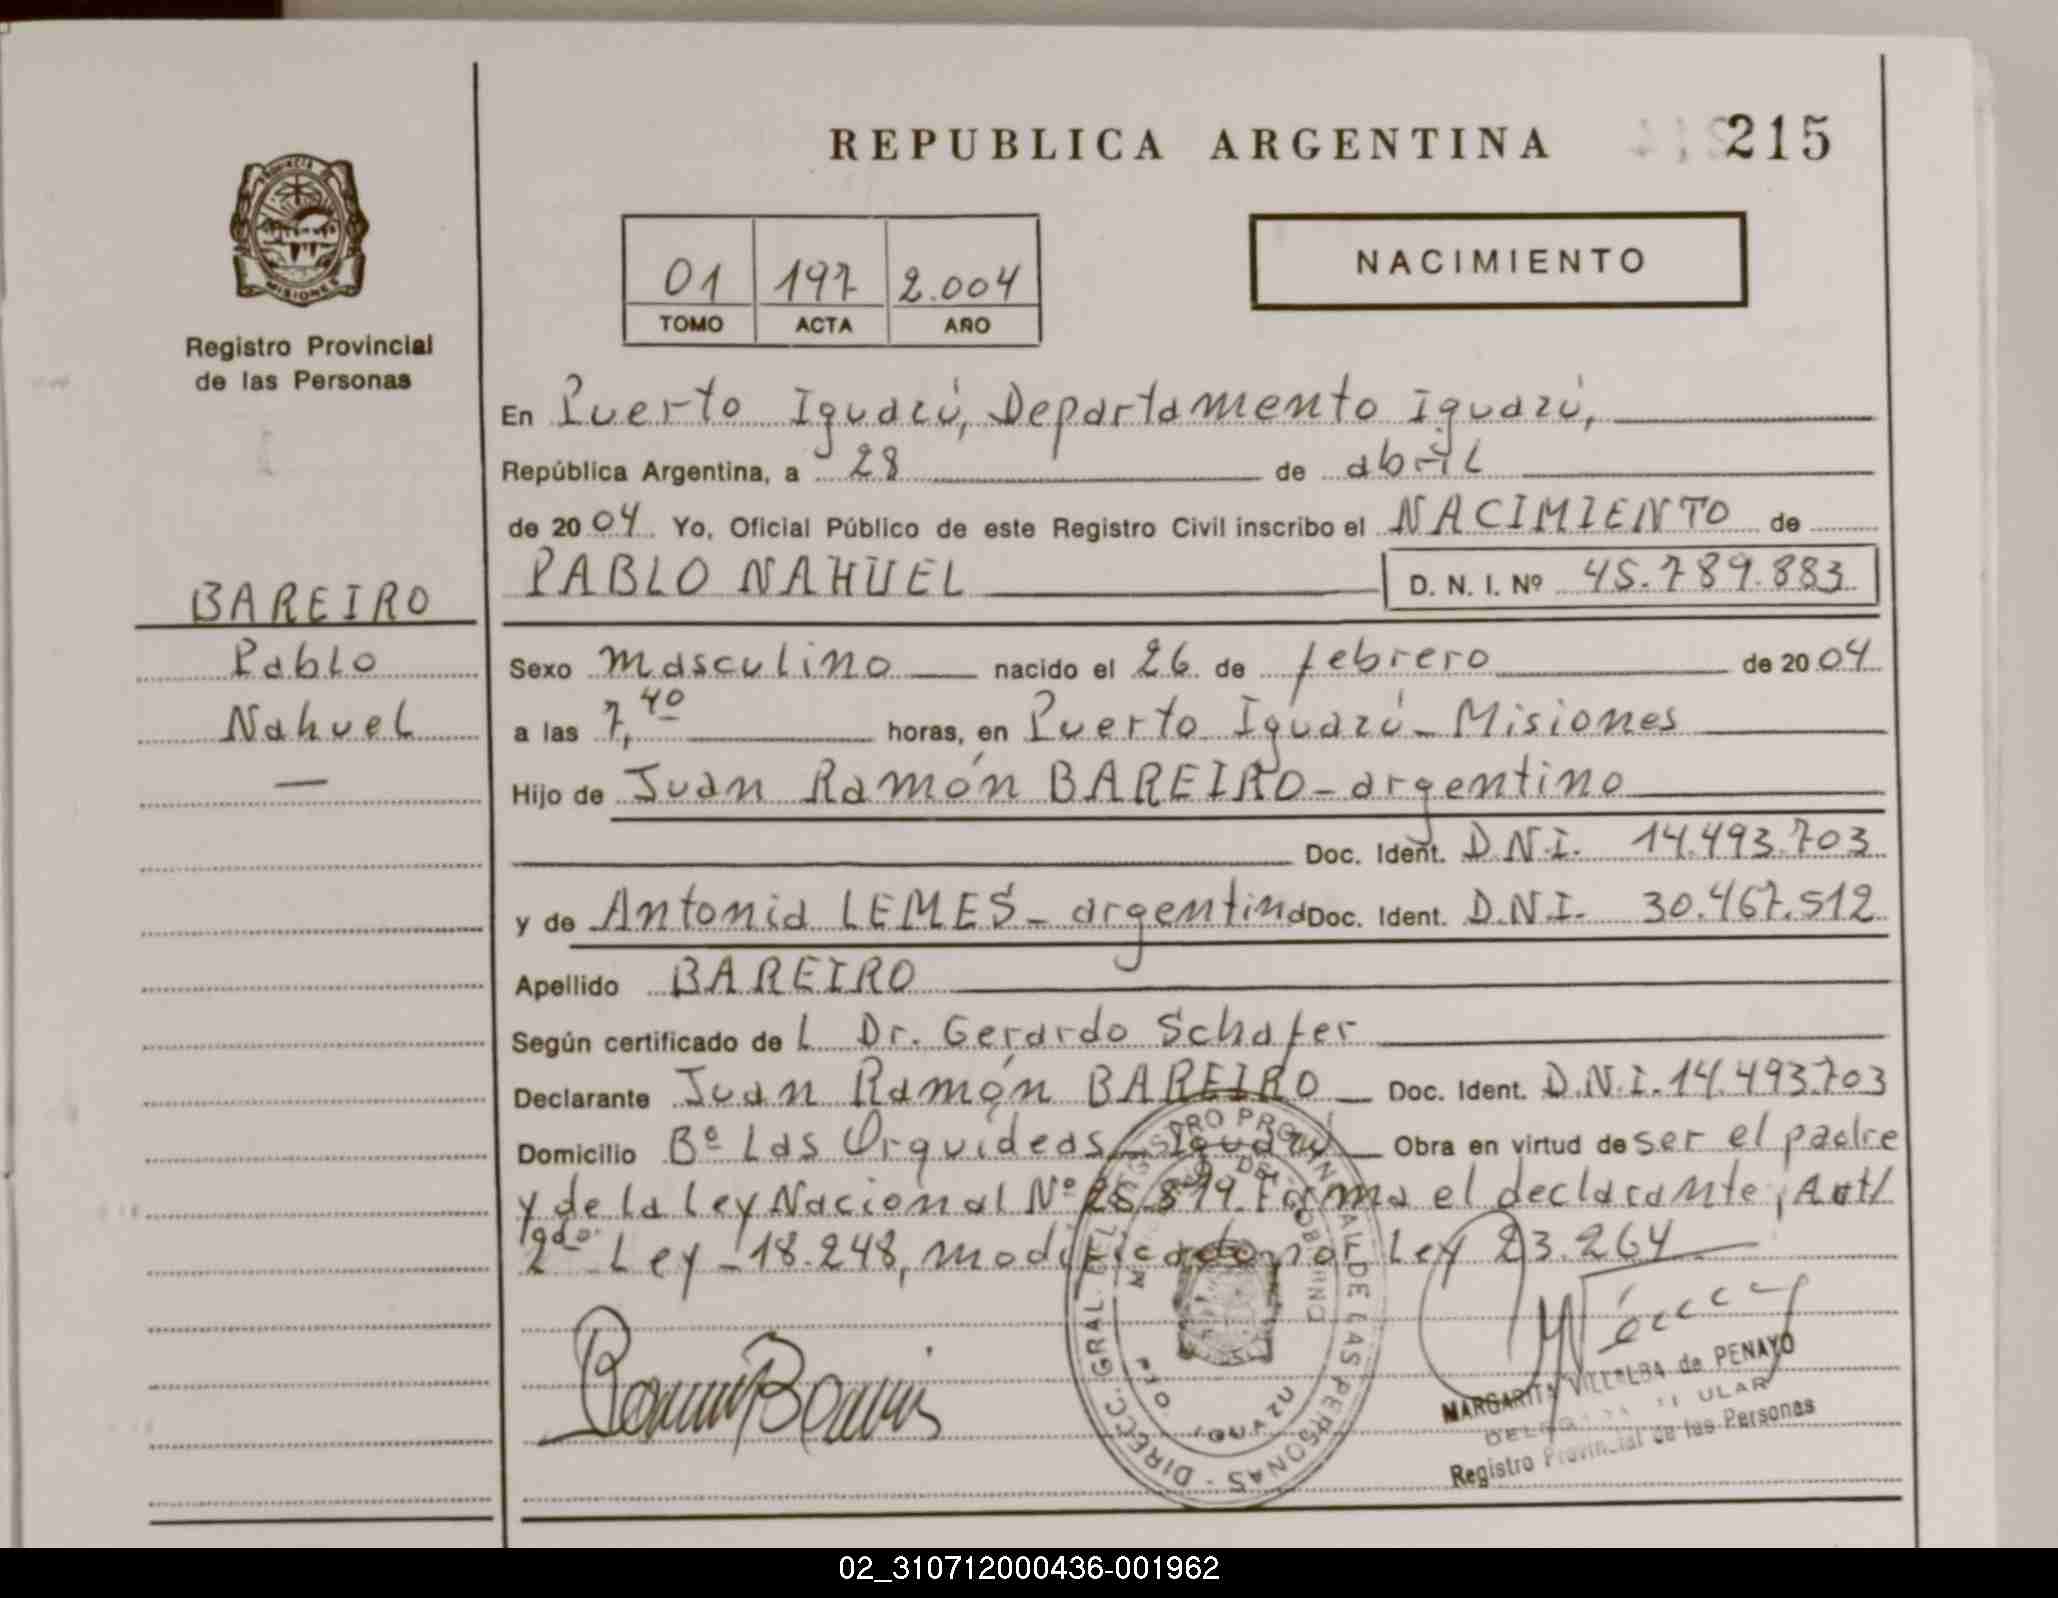 REPUBLICA ARGENTINA
215
PROVINCIA DE MISIONES
Registro Provincial
de las Personas
01 197 2.004
TOMO ACTA AÑO
NACIMIENTO
En Puerto Iguazú, Departamento Iguazú,
República Argentina, a 28 de abril
de 2004 Yo, Oficial Público de este Registro Civil inscribo el NACIMIENTO de
PABLO NAHUEL D. N. I. Nº 45.789.883
BAREIRO
Pablo
Nahuel
—
Sexo masculino nacido el 26 de febrero de 2004
a las 7,40 horas, en Puerto Iguazú - Misiones
Hijo de Juan Ramón BAREIRO - argentino
Doc. Ident. D.N.I. 14.493.703
y de Antonia LEMES - argentina Doc. Ident. D.N.I. 30.467.512
Apellido BAREIRO
Según certificado de L Dr. Gerardo Schafer
Declarante Juan Ramón BAREIRO Doc. Ident. D.N.I. 14.493.703
Domicilio Bº Las Orquídeas - Iguazú Obra en virtud de ser el padre
y de la Ley Nacional Nº 25.819. Firma el declarante, Art/
2do Ley - 18.248, modificado por Ley 23.264
DIRECC. GRAL. DEL REGISTRO PROVINCIAL DE LAS PERSONAS
PTO. IGUAZU
MARGARITA VILLALBA de PENAYO
DELEGADA TITULAR
Registro Provincial de las Personas
02_310712000436-001962